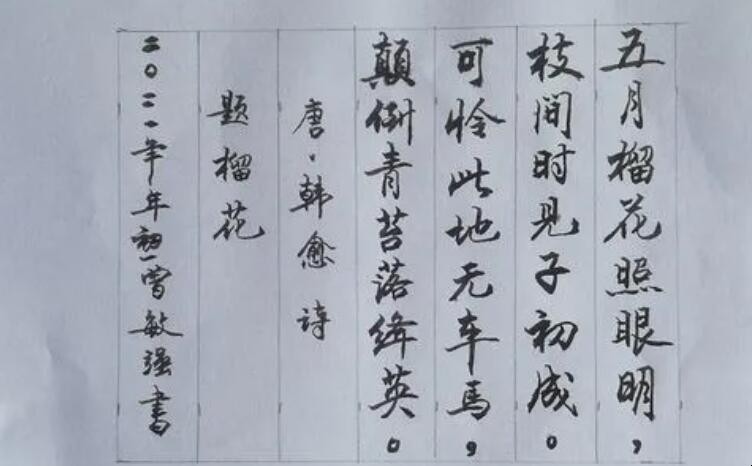 五月榴花照眼明，
枝间时见子初成。
可怜此地无车马，
颠倒青苔落绛英。
唐·韩愈诗
题榴花
二〇二一年年初一曾敏强书